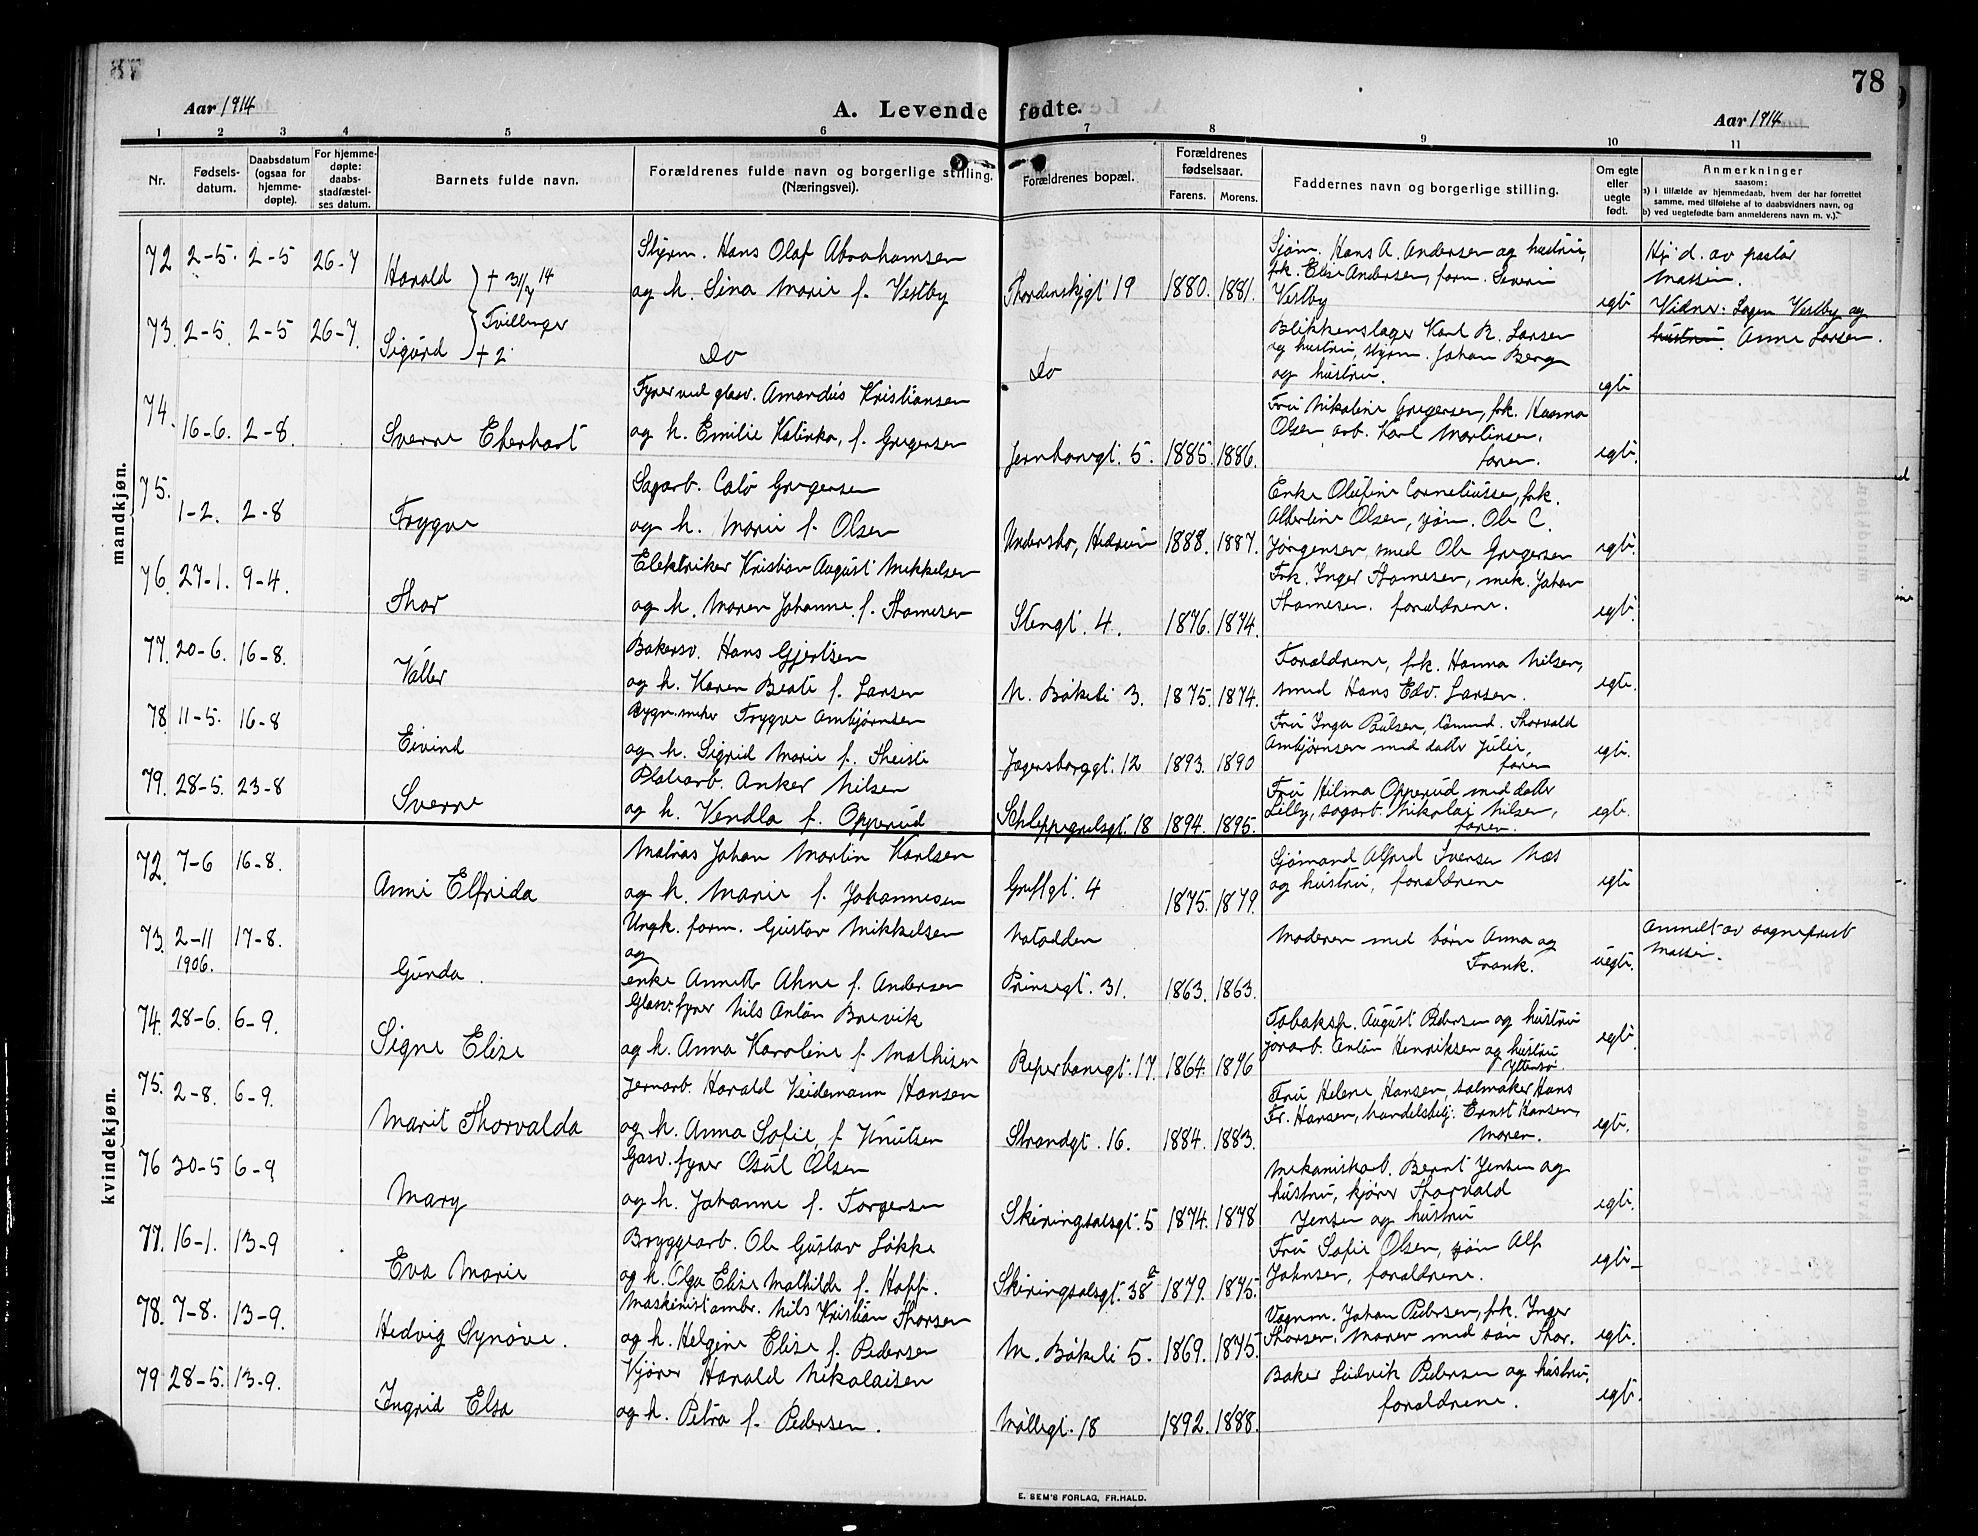 78
Aar 1914
A. Levende fødte.
Aar 1914
1 2 3 4 5 6 7 8 9 10 11
Nr.
Fødsels-
datum.
Daabsdatum
(ogsaa for
hjemme-
døpte).
For hjemme-
døpte:
daabs-
stadfæstel-
ses datum.
Barnets fulde navn.
Forældrenes fulde navn og borgerlige stilling.
(Næringsvei).
Forældrenes bopæl.
Forældrenes
fødselsaar.
Farens. Morens.
Faddernes navn og borgerlige stilling.
Om egte
eller
uegte
født.
Anmerkninger
saasom:
a) i tilfælde av hjemmedaab, hvem der har forrettet
samme, med tilføielse af to daabsvidners navn, og
b) ved uegtefødte barn anmelderens navn m. v.)
mandkjøn.
72 2-5. 2-5 26-7
Harald † 31/7 14
Styrm. Hans Olaf Abrahamsen
og h. Lina Marie f. Vestby
Thordenskjgt 19 1880. 1881.
Sjøm. Hans A. Andersen og hustru,
frk. Elise Andersen, form. Severin
Vestby
egte
Hj. d. av pastor
Massin.
Vidner: Vestby og
hustru. Anna Larsen.
73. 2-5. 2-5 26-7.
Tvillinger
Sigurd † 2
Do
Do
Blikkenslager Karl R. Larsen
og hustru, styrm. Johan Berg
og hustru.
egte
74. 16-6. 2-8.
Sverre Eberhart
Fyrer ved glasv. Amandus Kristiansen
og h. Emilie Katinka, f. Gregersen
Jernbanegt. 5. 1885. 1886.
Fru Nikoline Gregersen, frk. Hanna
Olsen arb. Karl Martinsen,
faren.
egte.
75. 1-2. 2-8
Trygve
Sagarb. Calo Gregersen
og h. Marie f. Olsen
Undersbo, Hedrum 1888. 1887.
Enke Olufine Corneliusse, frk.
Albertine Olsen, sjøm. Ole C.
Jørgensen, smed Ole Gregersen
egte.
76. 27-1. 9-4.
Thor
Elektriker Kristian August Mikkelsen
og h. Maren Johanne f. Thomesen
Stengt. 4. 1876. 1874.
Frk. Inger Thomesen, mek. Johan
Thomesen. forældrene.
egte.
77. 20-6. 16-8.
Valler
Bakersv. Hans Gjertsen
og h. Karen Beate f. Larsen
N. Bøkeli 3. 1875. 1874.
Forældrene, frk. Hanna Nilsen,
smed Hans Edv. Larsen.
egte.
78 11-5. 16-8
Eivind
Bygn.snekr Trygve Ambjørnsen
og h. Sigrid Marie f. Theiste
Jegersborggt. 12 1893. 1890
Fru Inga Paulsen, Thorvald
Ambjørnsen med datter Julie,
faren
egte.
79. 28-5. 23-8
Sverre
Platearb. Anker Nilsen
og h. Vendla f. Opperud
Schleppegrelsgt. 18 1894. 1895.
Fru Hilma Opperud med datter
Lilly, sagarb. Nikolai Nilsen,
faren.
egte.
kvindekjøn.
72. 7-6 16-8.
Anni Elfrida
Matros Johan Martin Karlsen
og h. Marie f. Johannesen
Greffgt. 4 1875. 1879.
Sjømand Alfred Iversen Næs
og hustru, forældrene
egte
73. 2-11 1906. 17-8.
Gunda.
Ungk. form. Gustav Mikkelsen
og
enke Annette Ahne f. Andersen
Notodden
Prinsegt. 31. 1863. 1863.
Moderen med børn Anna og
Frank.
uegte.
Anmeldt av sogneprest
Massin.
74. 28-6. 6-9.
Signe Elise
Glasv. fyrer Nils Anton Brevik
og h. Anna Karoline f. Mathisen
Reperbanegt. 17. 1864. 1876
Tobaksf. August Pedersen og hustru
jernarb. Anton Henriksen og hustru
Ytterso.
egte.
75. 2-8. 6-9.
Marit Thorvalda
Jernarb. Harald Veidemann Hansen
og h. Anna Sofie, f. Knutsen
Strandgt. 16. 1884. 1883.
Fru Helene Hansen, salmaker Hans
Fr. Hansen, handelsbetj. Ernst Hansen,
Moren.
egte.
76 30-5 6-9
Mary
Gasv. fyrer Osul Olsen
og h. Johanne f. Torgersen
Skiringsalsgt. 5 1874. 1878
Mekaniskarb. Bernt Jensen og
hustru, kjører Thorvald
Jensen og hustru
egte.
77. 16-1. 13-9
Eva Marie
Bryggearb. Ole Gustav Løkke
og h. Olga Elise Mathilde f. Hoff.
Skiringsalsgt. 38 a 1879. 1875.
Fru Sofie Olsen, sjøm Alf
Johnsen, forældrene.
egte
78. 7-8. 13-9.
Hedvig Synøve.
Maskinist ombr. Nils Kristian Thorsen
og h. Helgine Elise f. Pedersen
N. Bøkeli 5. 1869. 1875.
Vognm. Johan Pedersen, frk. Inger
Thorsen, Moren med søn Thor.
egte.
79 28-5. 13-9.
Ingrid Elsa
Kjører Harald Nikolaisen
og h. Petra f. Pedersen.
Møllegt. 18 1892. 1888.
Baker Ludvik Pedersen og hustru,
forældrene.
egte.
E. SEM'S FORLAG, FR.HALD.